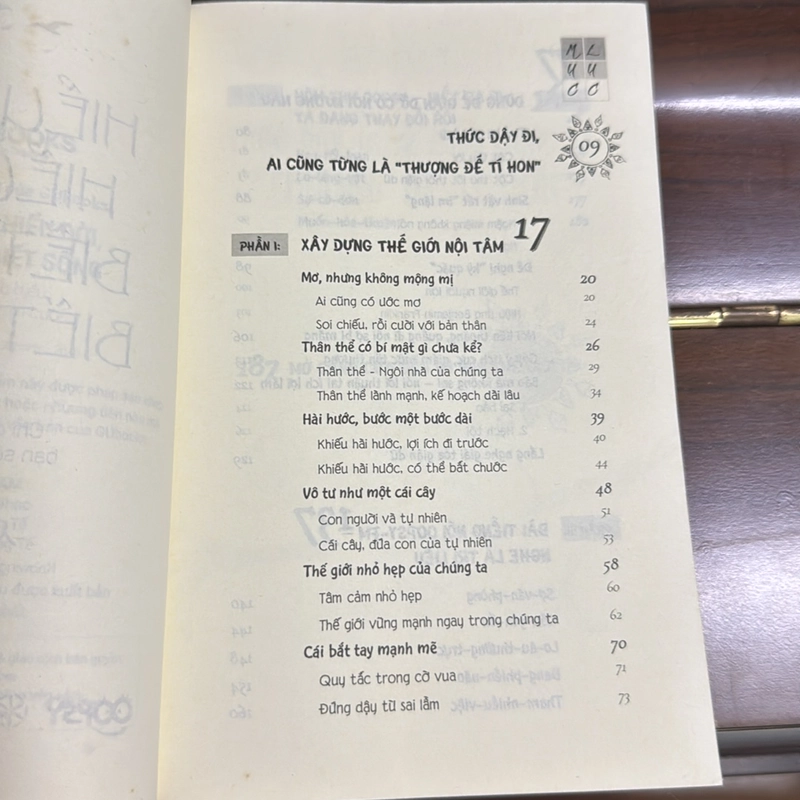 MỤC LỤC
THỨC DẬY ĐI,
AI CŨNG TỪNG LÀ "THƯỢNG ĐẾ TÍ HON" 09
PHẦN 1: XÂY DỰNG THẾ GIỚI NỘI TÂM 17
Mơ, nhưng không mộng mị 20
Ai cũng có ước mơ 20
Soi chiếu, rồi cười với bản thân 24
Thân thể có bí mật gì chưa kể? 26
Thân thể - Ngôi nhà của chúng ta 29
Thân thể lành mạnh, kế hoạch dài lâu 34
Hài hước, bước một bước dài 39
Khiếu hài hước, lợi ích đi trước 40
Khiếu hài hước, có thể bắt chước 44
Vô tư như một cái cây 48
Con người và tự nhiên 51
Cái cây, đứa con của tự nhiên 53
Thế giới nhỏ hẹp của chúng ta 58
Tâm cảm nhỏ hẹp 60
Thế giới vững mạnh ngay trong chúng ta 62
Cái bắt tay mạnh mẽ 70
Quy tắc trong cờ vua 71
Đứng dậy từ sai lầm 73